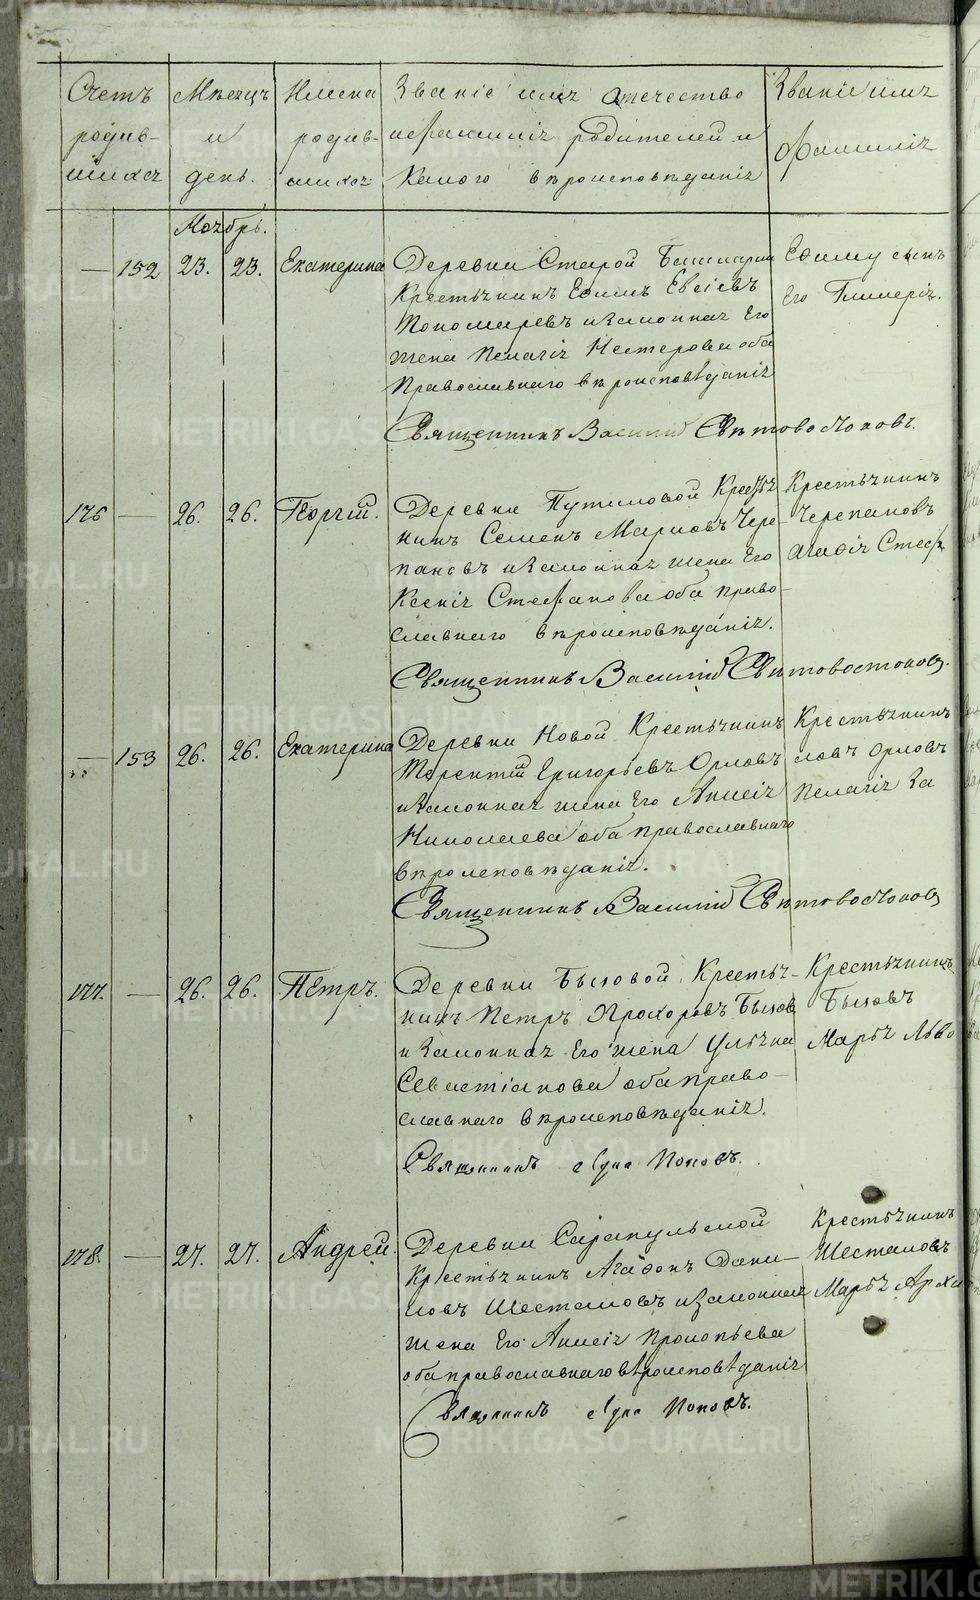 Счетъ родив- шихся
Мѣсяцъ и день.
Имена родив- шихся
Званіе имя отечество и фамилія родителей и Какого вѣроисповѣданія
Званіе имя фамилія
Ноябрь.
— 152 23. 23. Екатерина
Деревни Старой Башкарки
Крестьянинъ Ефимъ Евсіевъ
Пономаревъ и законная Его
жена Пелагія Нестерова оба
Православнаго вѣроисповѣданія
Священникъ Василій Свѣтовостоковъ.
Ефиму сынъ
Его Гликерія.
176 — 26. 26. Георгій.
Деревни Путиловой Крестья
нинъ Семенъ Марковъ Чере-
пановъ и законная жена Его
Ксенія Стефанова оба право-
славнаго вѣроисповѣданія.
Священникъ Василій Свѣтовостоковъ.
Крестьянинъ
Черепановъ
Агафія Стеф
— 153 26. 26. Екатерина
Деревни Новой Крестьянинъ
Терентій Григорьевъ Орловъ
и законная жена Его Анисія
Николаева оба православнаго
вѣроисповѣданія.
Священникъ Василій Свѣтовостоковъ
Крестьянинъ
ловъ Орловъ
Пелагія Ка
177. — 26. 26. Петръ.
Деревни Бызовой Крестья-
нинъ Петръ Прохоровъ Бызовъ
и законная Его жена Ульяна
Севастіанова оба право-
славнаго вѣроисповѣданія.
Священникъ Поповъ.
Крестьянинъ
Бызовъ
Марья Льво
178. — 27. 27. Андрей.
Деревни Сарапульской
Крестьянинъ Агафонъ Дани-
ловъ Шестаковъ и законная
жена Его Анисія Прокопьева
оба православнаго вѣроисповѣданія
Священникъ Поповъ.
Крестьянинъ
Шестаковъ
Марья Архи
METRIKI.GASO-URAL.RU